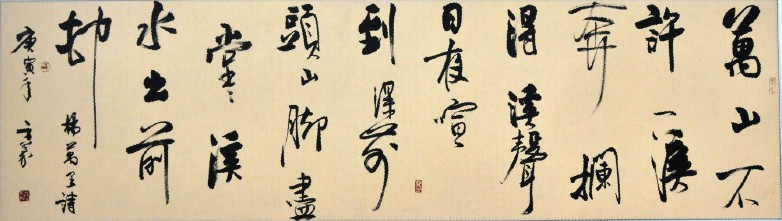 萬山不
許一溪
奔攔
得溪聲
日夜喧
到得前
頭山脚盡
堂〻溪
水出前
村
楊萬里詩
庚寅年